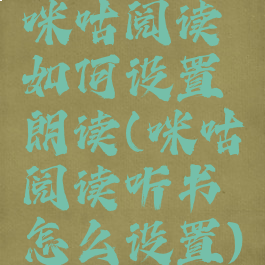 咪咕阅读
如何设置
朗读(咪咕
阅读听书
怎么设置)